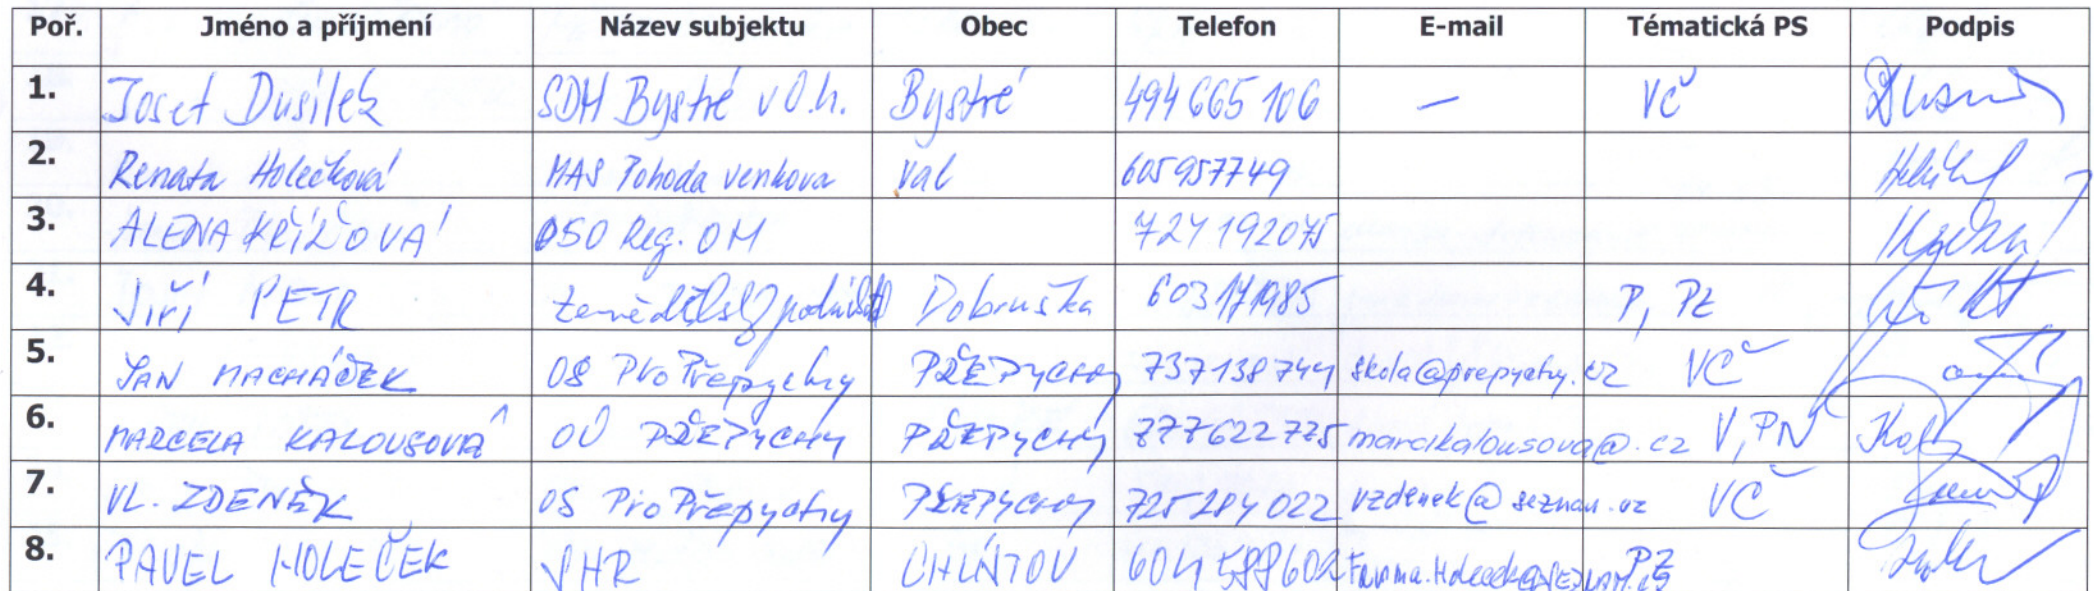 Poř. Jméno a příjmení Název subjektu Obec Telefon E-mail Tématická PS Podpis
1. Josef Dusílek SDH Bystré v O.h. Bystré 494 665 106 – VČ
2. Renata Holečková MAS Pohoda venkova Val 605957749
3. ALENA KŘÍŽOVÁ DSO Reg. OM 724 192075
4. Jiří PETR Dobruška P, PZ
5. JAN MACHÁČEK OS Pro Přepychy PŘEPYCHY 737138744 skola@prepychy.cz VČ
6. MARCELA KALOUSOVÁ OÚ PŘEPYCHY PŘEPYCHY 777622775 marcikalousova@.cz V, PN
7. VL. ZDENĚK OS Pro Přepychy PŘEPYCHY 725 284 022 vzdenek@seznam.cz VČ
8. PAVEL HOLEČEK SHR CHLÍSTOV PZ